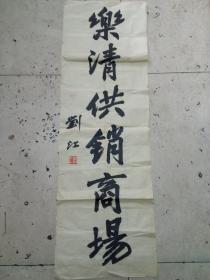 樂清供銷商場
劉江